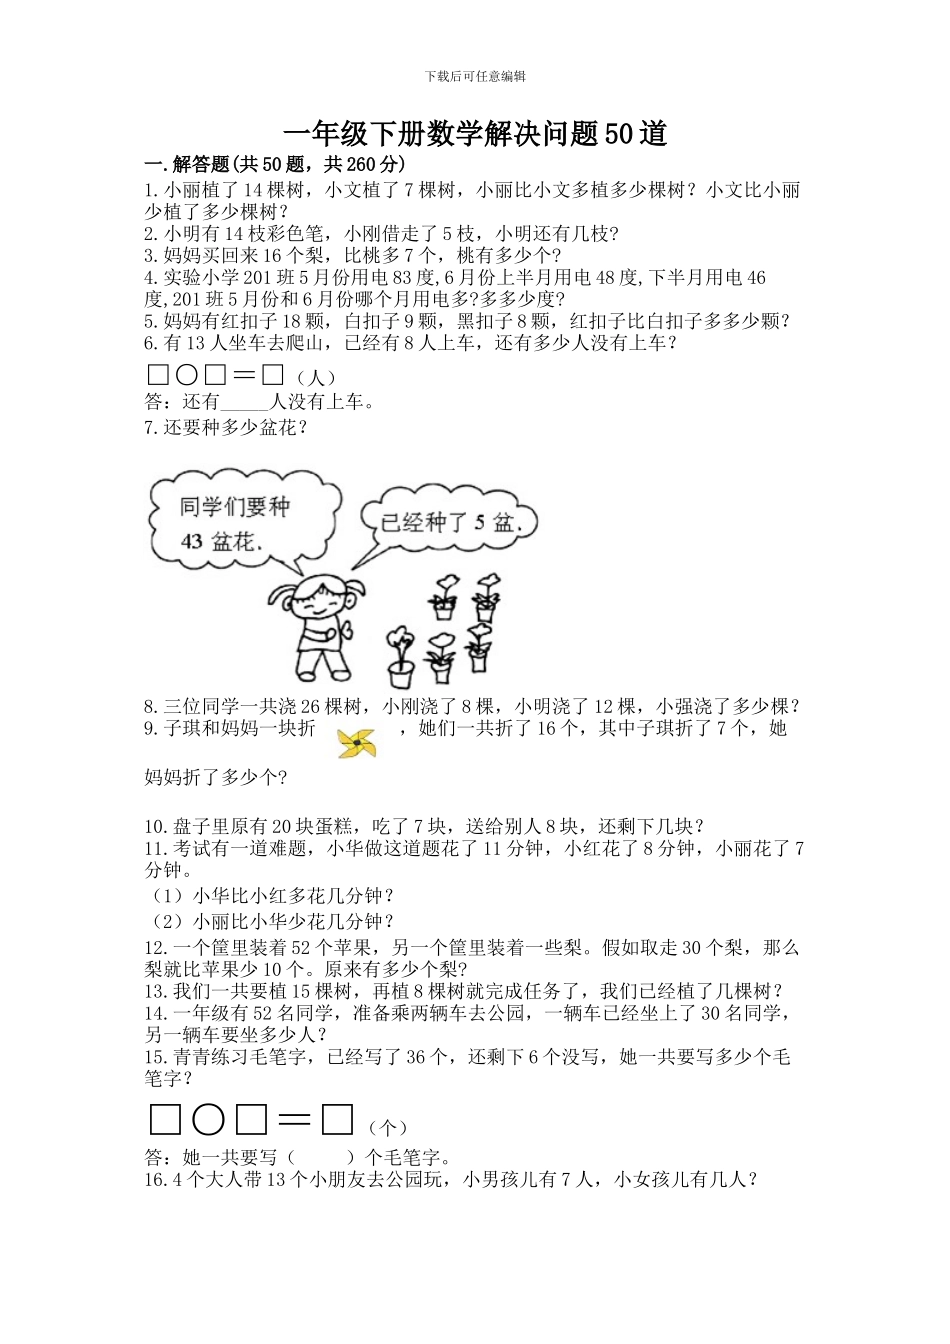 下载后可任意编辑
一年级下册数学解决问题50道
一.解答题(共50题，共260分)
1.小丽植了14棵树，小文植了7棵树，小丽比小文多植多少棵树？小文比小丽
少植了多少棵树？
2.小明有14枝彩色笔，小刚借走了5枝，小明还有几枝?
3.妈妈买回来16个梨，比桃多7个，桃有多少个?
4.实验小学201班5月份用电83度,6月份上半月用电48度,下半月用电46
度,201班5月份和6月份哪个月用电多?多多少度?
5.妈妈有红扣子18颗，白扣子9颗，黑扣子8颗，红扣子比白扣子多多少颗？
6.有13人坐车去爬山，已经有8人上车，还有多少人没有上车？
□○□＝□（人）
答：还有_____人没有上车。
7.还要种多少盆花？
同学们要种
43盆花.
已经种了5盆.
8.三位同学一共浇26棵树，小刚浇了8棵，小明浇了12棵，小强浇了多少棵？
9.子琪和妈妈一块折 ，她们一共折了16个，其中子琪折了7个，她
妈妈折了多少个?
10.盘子里原有20块蛋糕，吃了7块，送给别人8块，还剩下几块？
11.考试有一道难题，小华做这道题花了11分钟，小红花了8分钟，小丽花了7
分钟。
（1）小华比小红多花几分钟？
（2）小丽比小华少花几分钟？
12.一个筐里装着52个苹果，另一个筐里装着一些梨。假如取走30个梨，那么
梨就比苹果少10个。原来有多少个梨?
13.我们一共要植15棵树，再植8棵树就完成任务了，我们已经植了几棵树？
14.一年级有52名同学，准备乘两辆车去公园，一辆车已经坐上了30名同学，
另一辆车要坐多少人？
15.青青练习毛笔字，已经写了36个，还剩下6个没写，她一共要写多少个毛
笔字？
□○□＝□（个）
答：她一共要写（　　）个毛笔字。
16.4个大人带13个小朋友去公园玩，小男孩儿有7人，小女孩儿有几人？